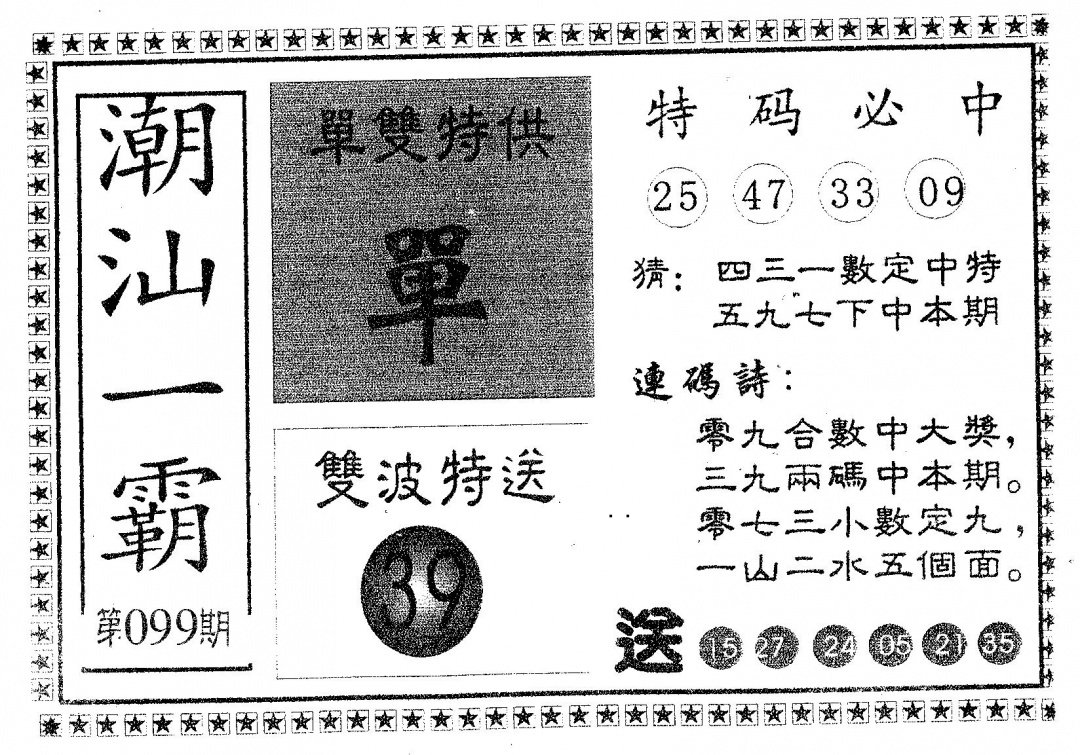 潮汕一霸
第099期
單雙特供
單
雙波特送
39
特码必中
25 47 33 09
猜：四三一數定中特
五九七下中本期
連碼詩：
零九合數中大獎，
三九兩碼中本期。
零七三小數定九，
一山二水五個面。
送 15 27 24 05 21 35